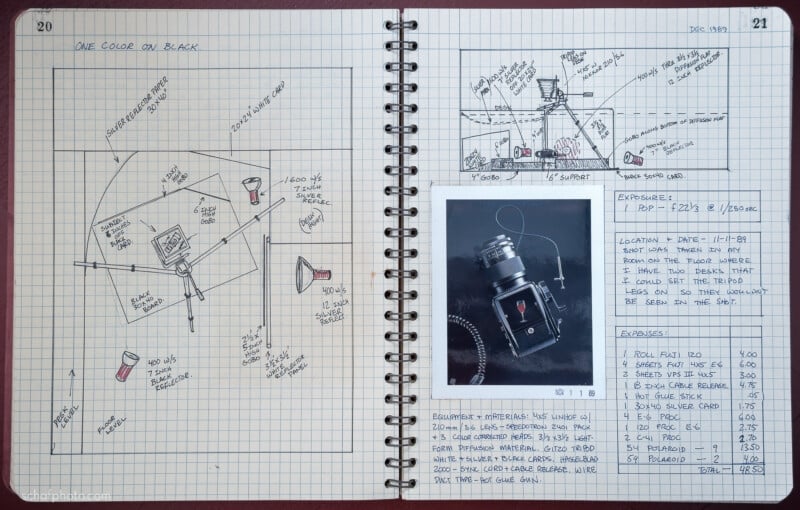 20
ONE COLOR ON BLACK
SILVER REFLECTOR PAPER
30X40"
20X24" WHITE CARD
4 INCH
HIGH
GOBO
6 INCH
HIGH
GOBO
1600 W/S
7 INCH
SILVER
REFLEC.
SUBJECT
INCHES
OFF
BLACK
CARD.
400 W/S
12 INCH
SILVER
REFLECT
BLACK
30X40
BOARD.
5 INCH
HIGH
GOBO
WHITE
REFLECTOR
PANEL
400 W/S
7 INCH
BLACK
REFLECTOR.
DESK
LEVEL
FLOOR
LEVEL
21
DEC 1989
400 W/S THRU 3½ X 3½
DIFFUSION FLAP
12 INCH
REFLECTOR.
GOBO ALONG BOTTOM OF DIFFUSION FLAP
400 W/S
7" BLACK
REFLECTOR
4" GOBO
6" SUPPORT
BLACK 30X40 CARD.
EXPOSURE:
1 POP - f22⅓ @ 1/250 SEC
LOCATION + DATE - 11-11-89
SHOT WAS TAKEN IN MY
ROOM ON THE FLOOR WHERE
I HAVE TWO DESKS THAT
I COULD SET THE TRIPOD
LEGS ON SO THEY WOULDN'T
BE SEEN IN THE SHOT.
EXPENSES:
1 ROLL FUJI 120 4.00
4 SHEETS FUJI 4X5 E6 6.00
2 SHEETS VPS III 4X5 3.00
1 8 INCH CABLE RELEASE 4.75
1 HOT GLUE STICK .05
1 30X40 SILVER CARD 1.75
4 E-6 PROC 6.00
1 120 PROC E-6 2.75
2 C41 PROC 2.70
54 POLAROID - 9 13.50
59 POLAROID - 2 4.00
TOTAL - 48.50
EQUIPMENT + MATERIALS: 4X5 LINHOF W/
210mm/5.6 LENS - SPEEDOTRON 2401 PACK
+ 3 COLOR CORRECTED HEADS. 3½ X 3½ LIGHT-
FORM DIFFUSION MATERIAL. GITZO TRIPOD
WHITE + SILVER + BLACK CARDS. HASSELBLAD
2000 - SYNC CORD + CABLE RELEASE. WIRE
DUCT TAPE - HOT GLUE GUN.
charphoto.com